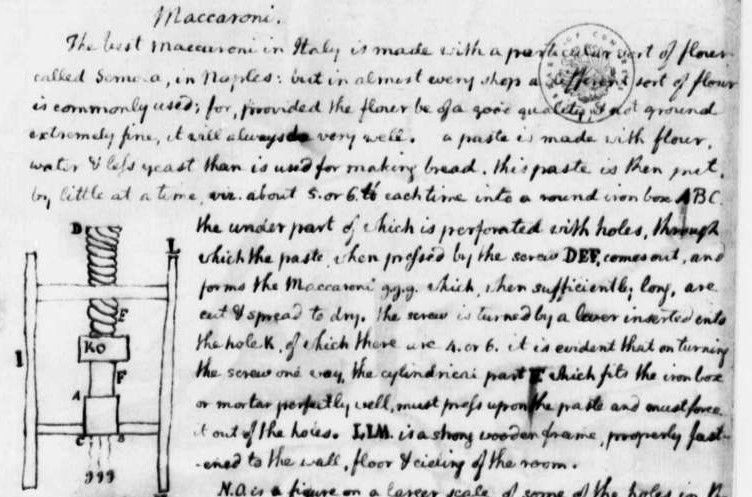 Maccaroni.
The best maccaroni in Italy is made with a particular sort of flour
called Semola, in Naples: but in almost every shop a different sort of flour
is commonly used; for, provided the flour be of a good quality, & not ground
extremely fine, it will always do very well. a paste is made with flour,
water & less yeast than is used for making bread. this paste is then put,
by little at a time, viz. about 5. or 6. ℔ each time into a round iron box ABC.
the under part of which is perforated with holes, through
which the paste, when pressed by the screw DEF, comes out, and
forms the Maccaroni g.g.g. which, when sufficiently long, are
cut & spread to dry. the screw is turned by a lever inserted into
the hole K, of which there are 4. or 6. it is evident that on turning
the screw one way, the cylindrical part F. which fits the iron box
or mortar perfectly well, must press upon the paste and must force
it out of the holes. LLM. is a strong wooden frame, properly fast-
-ened to the wall, floor & cieling of the room.
N.O. is a figure on a larger scale of some of the holes in
D
L
E
I
K
F
A
C
B
g g g